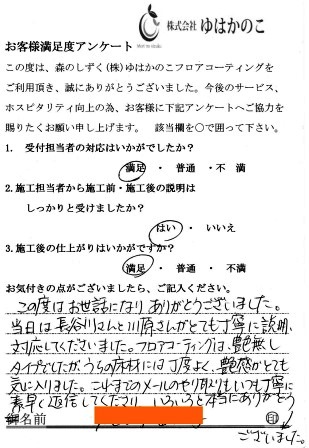 株式会社 ゆはかのこ
お客様満足度アンケート
この度は、森のしずく(株)ゆはかのこフロアコーティングを
ご利用頂き、誠にありがとうございました。今後のサービス、
ホスピタリティ向上の為、お客様に下記アンケートへご協力を
賜りたくお願い申し上げます。 該当欄を○で囲って下さい。
1. 受付担当者の対応はいかがでしたか?
満足 ・ 普通 ・ 不 満
2. 施工担当者から施工前・施工後の説明は
しっかりと受けましたか?
はい ・ いいえ
3. 施工後の仕上がりはいかがですか?
満足 ・ 普通 ・ 不 満
お気付きの点がございましたら、ご記入ください。
この度はお世話になりありがとうございました。
当日は長谷川さんと川原さんがとても丁寧に説明、
対応してくださいました。フロアコーティングは、艶無し
タイプでしたが、うちの床材には丁度よく、艶感がとても
気に入りました。これまでのメールのやり取りもいつも丁寧に
素早く返信してくださり いろいろと本当にありがとう
御名前 印
ございました。